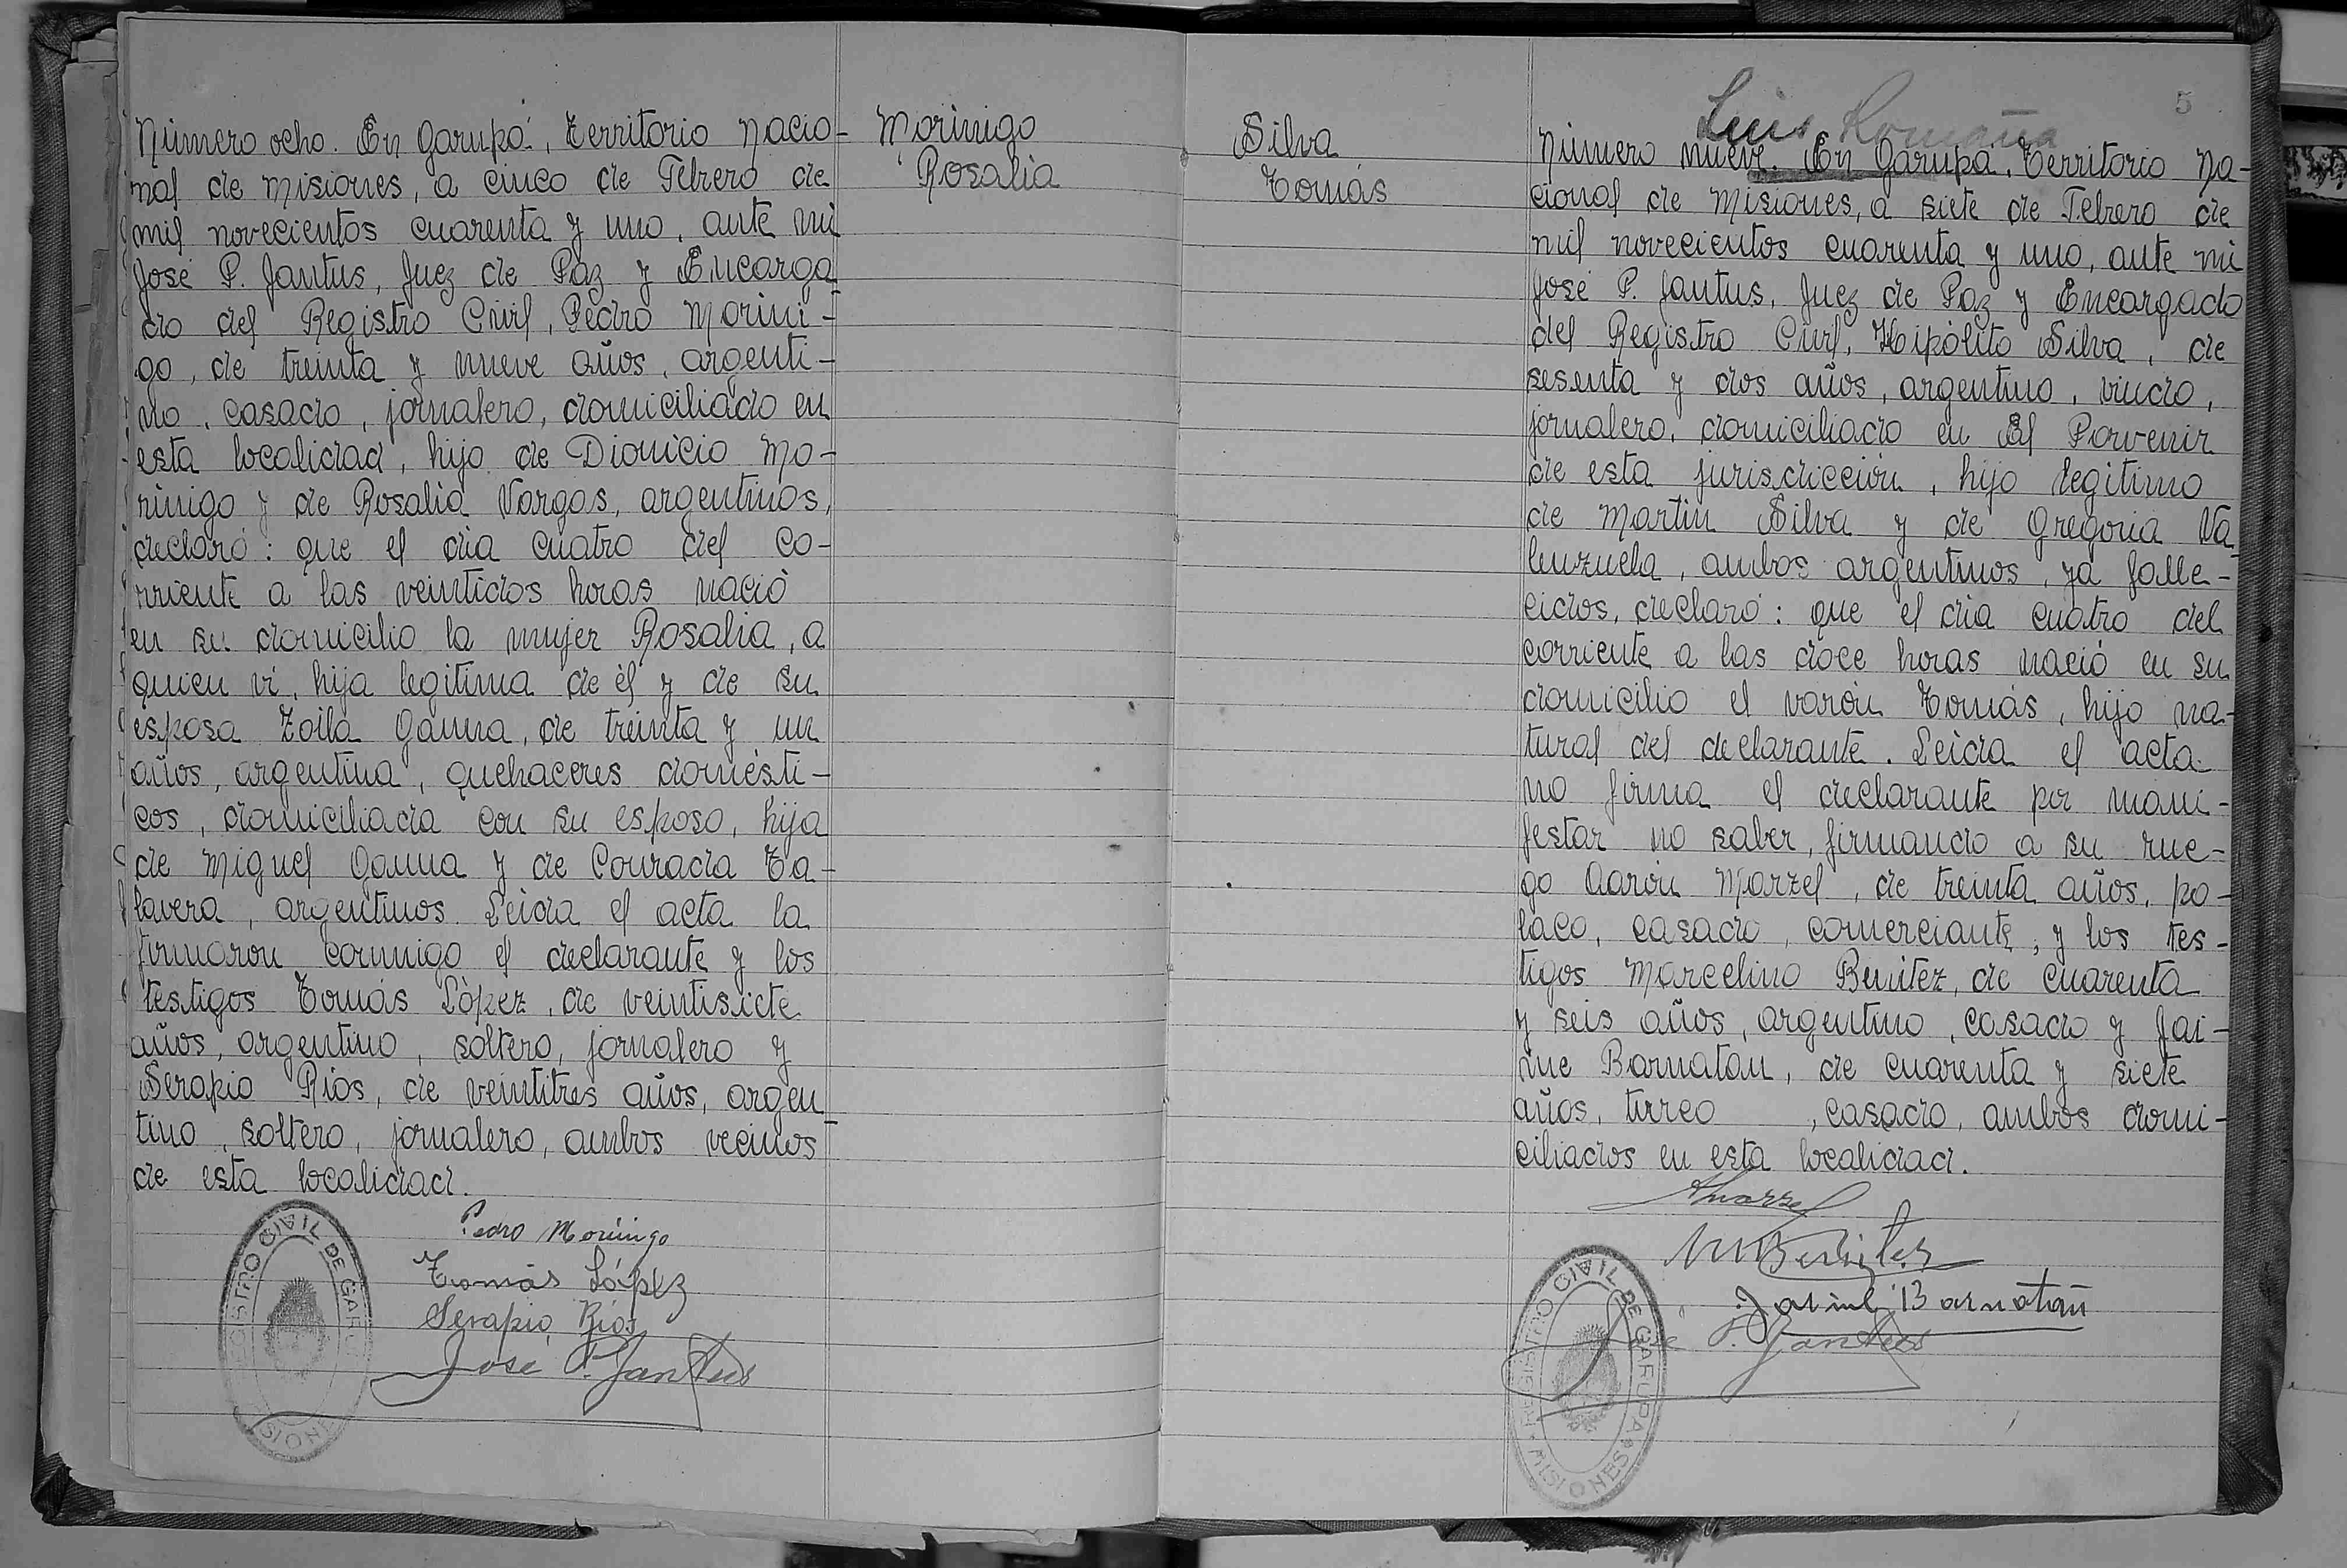 Número ocho. En Garupá, Territorio Nacio-
nal de Misiones, a cinco de Febrero de
mil novecientos cuarenta y uno, ante mi
José P. Jantus, Juez de Paz y Encarga-
do del Registro Civil, Pedro Morini-
go, de treinta y nueve años, argenti-
no, casado, jornalero, domiciliado en
esta localidad, hijo de Dionicio Mo-
rinigo y de Rosalia Vargas, argentinos,
declaró: que el dia cuatro del co-
rriente a las veintidos horas nació
en su domicilio la mujer Rosalia, a
quien vi, hija legitima de él y de su
esposa Zoila Gauna, de treinta y un
años, argentina, quehaceres domésti-
cos, domiciliada con su esposo, hija
de Miguel Gauna y de Conrada Ta-
lavera, argentinos. Leida el acta la
firmaron conmigo el declarante y los
testigos Tomás López, de veintisiete
años, argentino, soltero, jornalero y
Serapio Rios, de veintitres años, argen-
tino, soltero, jornalero, ambos vecinos
de esta localidad.
Pedro Morinigo
Tomás López
Serapio Rios
José P. Jantus
REGISTRO CIVIL DE GARUPA MISIONES
Morinigo
Rosalia
Silva
Tomás
5
Luis Romaña
Número nueve. En Garupá, Territorio Na-
cional de Misiones, a siete de Febrero de
mil novecientos cuarenta y uno, ante mi
José P. Jantus, Juez de Paz y Encargado
del Registro Civil, Hipólito Silva, de
sesenta y dos años, argentino, viudo,
jornalero, domiciliado en El Porvenir
de esta jurisdicción, hijo legitimo
de Martin Silva y de Gregoria Va-
lenzuela, ambos argentinos, ya falle-
cidos, declaró: que el dia cuatro del
corriente a las doce horas nació en su
domicilio el varón Tomás, hijo na-
tural del declarante. Leida el acta
no firma el declarante por mani-
festar no saber, firmando a su rue-
go Aarón Marzel, de treinta años, po-
laco, casado, comerciante, y los tes-
tigos Marcelino Benitez, de cuarenta
y seis años, argentino, casado y Jai-
me Barnatan, de cuarenta y siete
años, turco , casado, ambos domi-
ciliados en esta localidad.
AMarzel
M Benitez
Jaime Barnatan
José P. Jantus
REGISTRO CIVIL DE GARUPA MISIONES